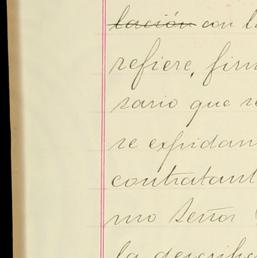 lación con l
refiere, fir
sario que s
se expidan
contratant
mo Señor
la describ